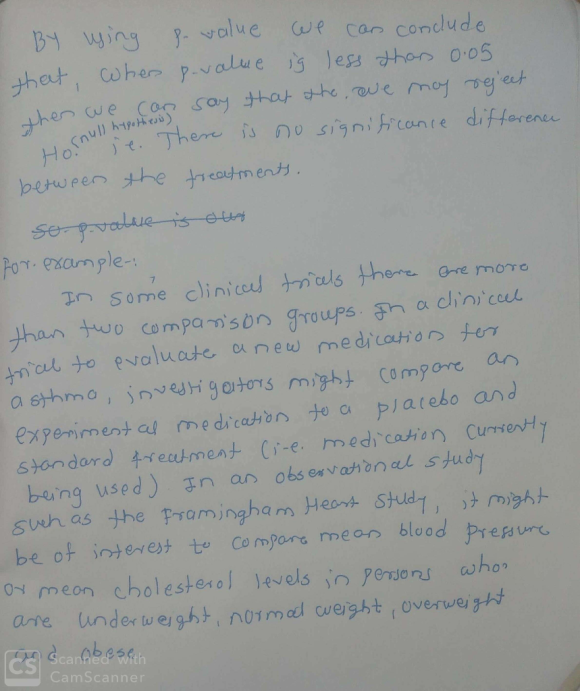 By using p-value we can conclude
that, when p-value is less than 0.05
then we can say that the. we may reject
(null hypothesis)
Ho: i.e. There is no significance difference
between the treatments.
So p-value is our
For example-:
In some clinical trials there are more
than two comparison groups. In a clinical
trial to evaluate a new medication for
asthma, investigators might compare an
experimental medication to a placebo and
standard treatment (i.e. medication currently
being used). In an observational study
such as the Framingham Heart Study, it might
be of interest to compare mean blood pressure
or mean cholesterol levels in persons who
are underweight, normal weight, overweight
and obese.
CS Scanned with
CamScanner